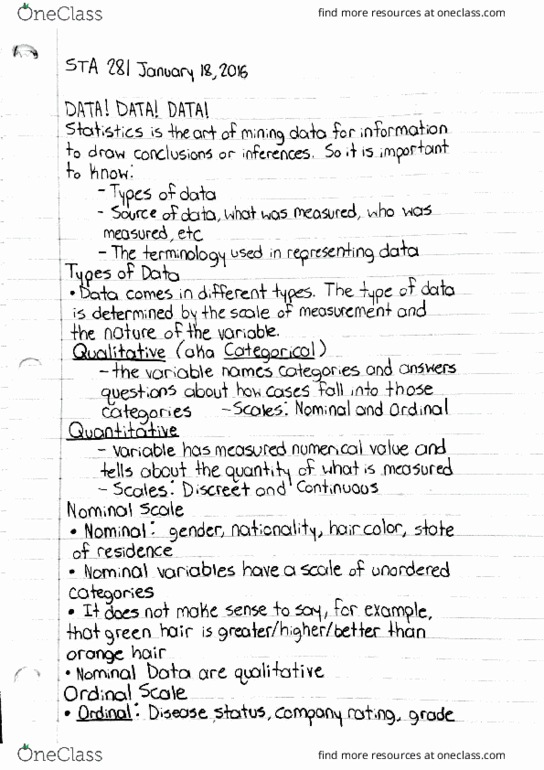 OneClass
find more resources at oneclass.com
STA 281 January 18, 2016
DATA! DATA! DATA!
Statistics is the art of mining data for information
to draw conclusions or inferences. So it is important
to know:
- Types of data
- Source of data, what was measured, who was
measured, etc
- The terminology used in representing data
Types of Data
• Data comes in different types. The type of data
is determined by the scale of measurement and
the nature of the variable.
Qualitative (aka Categorical)
- the variable names categories and answers
questions about how cases fall into those
categories - Scales: Nominal and Ordinal
Quantitative
- Variable has measured numerical value and
tells about the quantity of what is measured
- Scales: Discreet and Continuous
Nominal Scale
• Nominal: gender, nationality, hair color, state
of residence
• Nominal variables have a scale of unordered
categories
• It does not make sense to say, for example,
that green hair is greater/higher/better than
orange hair
• Nominal Data are qualitative
Ordinal Scale
• Ordinal: Disease status, company rating, grade
OneClass
find more resources at oneclass.com